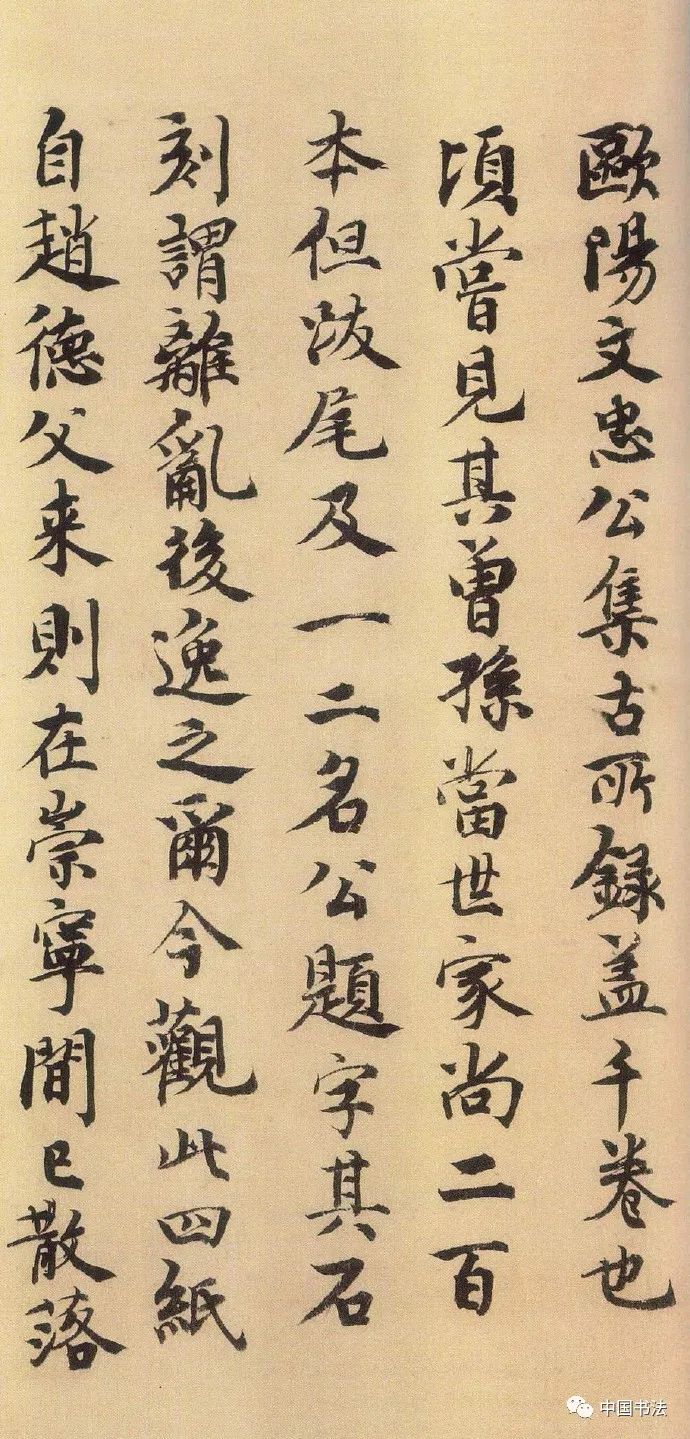 歐陽文忠公集古所錄蓋千卷也
頃嘗見其曾孫當世家尚二百
本但跋尾及一二名公題字其石
刻謂離亂後逸之爾今觀此四紙
自趙德父来則在崇寧間已散落
中国书法